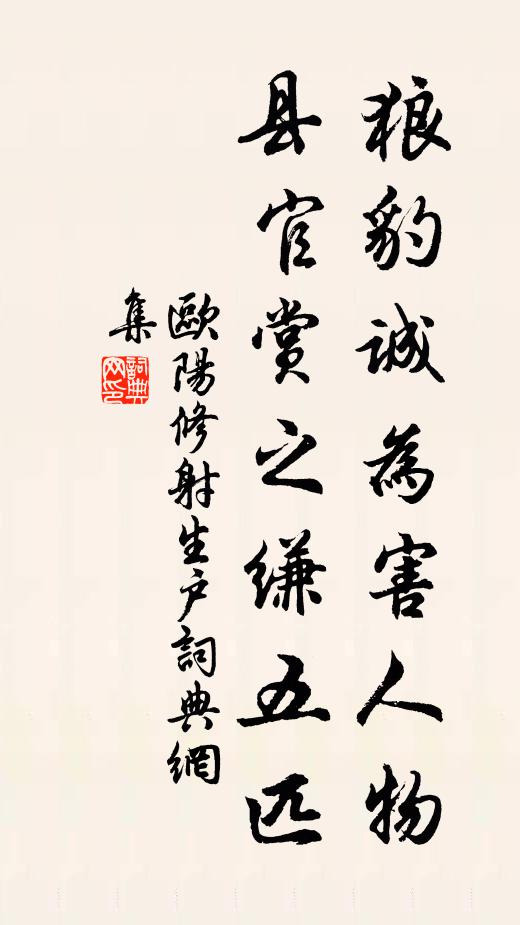 狼豹诚為害人物
县官赏之缣五匹
歐陽修射生户詞典網
集
詞典
网印